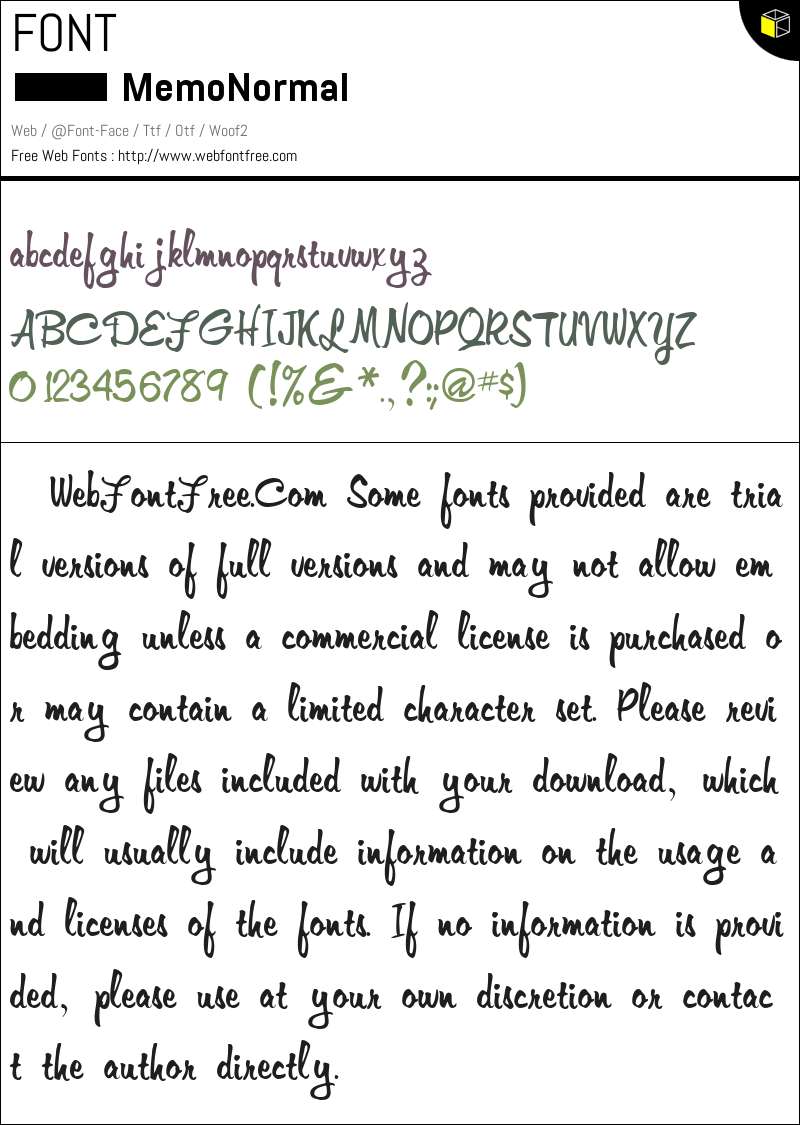 FONT
MemoNormal
Web / @Font-Face / Ttf / Otf / Woof2
Free Web Fonts : http://www.webfontfree.com
abcdefghi jklmnopqrstuvwxyz
ABCDEFGHIJKLMNOPQRSTUVWXYZ
0123456789 (!%&*.,?:;@#$)
WebFontFree.Com Some fonts provided are tria
l versions of full versions and may not allow em
bedding unless a commercial license is purchased o
r may contain a limited character set. Please revi
ew any files included with your download, which
will usually include information on the usage a
nd licenses of the fonts. If no information is provi
ded, please use at your own discretion or contac
t the author directly.